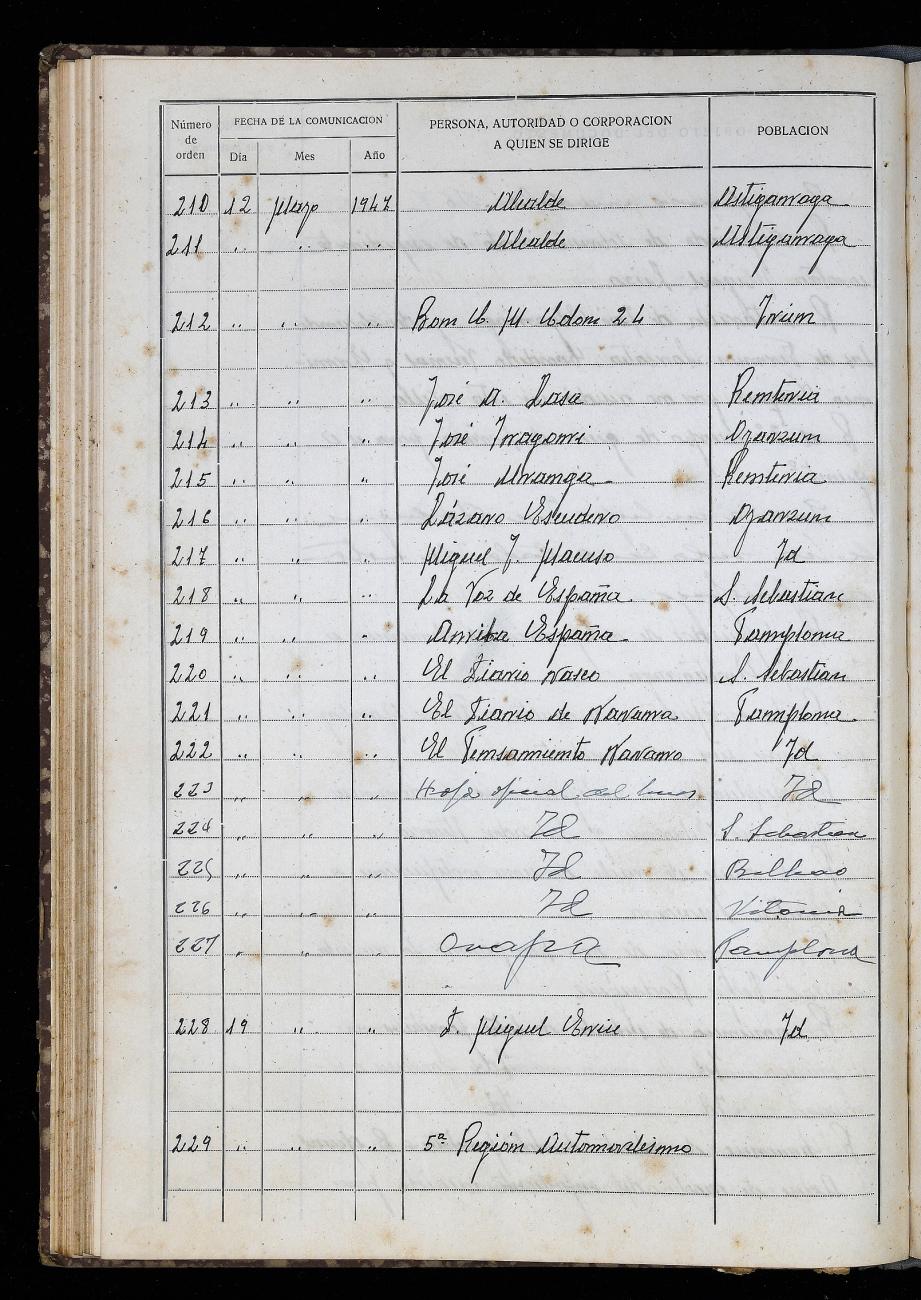 Número de orden | FECHA DE LA COMUNICACION | PERSONA, AUTORIDAD O CORPORACION A QUIEN SE DIRIGE | POBLACION
Día | Mes | Año
210 12 Mayo 1947 Alcalde Astigarraga
211 " " " Alcalde Astigarraga
212 " " " Bom C. M. Cdom 24 Irún
213 " " " José A. Lasa Rentería
214 " " " José Iragorri Oyarzum
215 " " " José Uranga Rentería
216 " " " Lázaro Escudero Oyarzum
217 " " " Miguel J. Macuso Id
218 " " " La Voz de España S. Sebastian
219 " " " Arriba España Pamplona
220 " " " El Diario Vasco S. Sebastian
221 " " " El Diario de Navarra Pamplona
222 " " " El Pensamiento Navarro Id
223 " " " Hoja oficial del lunes Id
224 " " " Id S. Sebastian
225 " " " Id Bilbao
226 " " " Id Vitoria
227 " " " Pamplona
228 19 " " D. Miguel Id
229 " " " 5ª Región Automovilismo